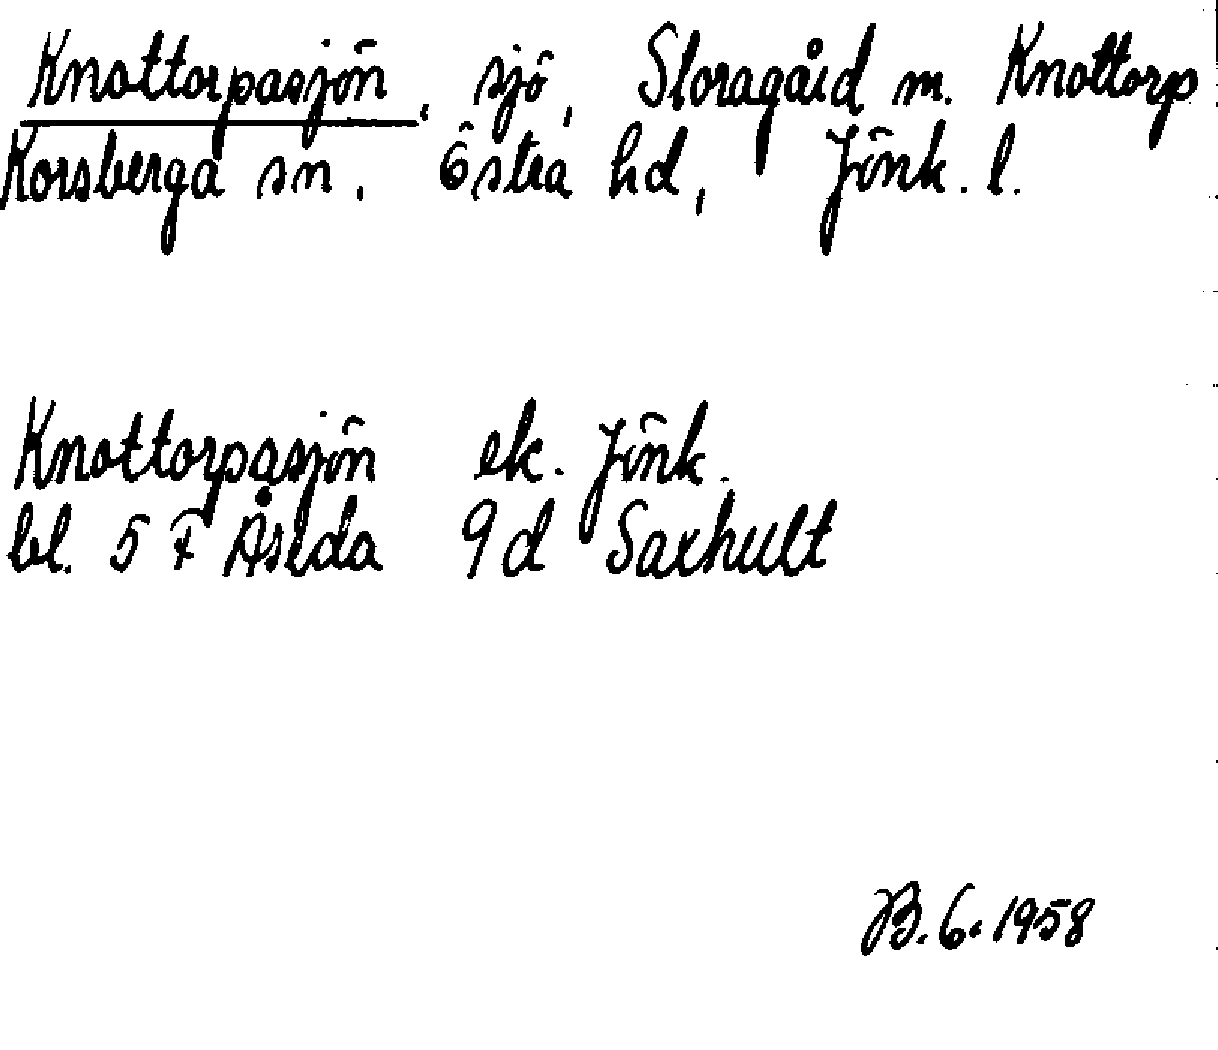 Knottorpasjön, sjö, Storagård m. Knottorp
Korsberga sn. Östra hd, Jönk. l.
Knottorpasjön ek. Jönk.
bl. 5 F Åseda 9d Saxhult
B.G. 1958